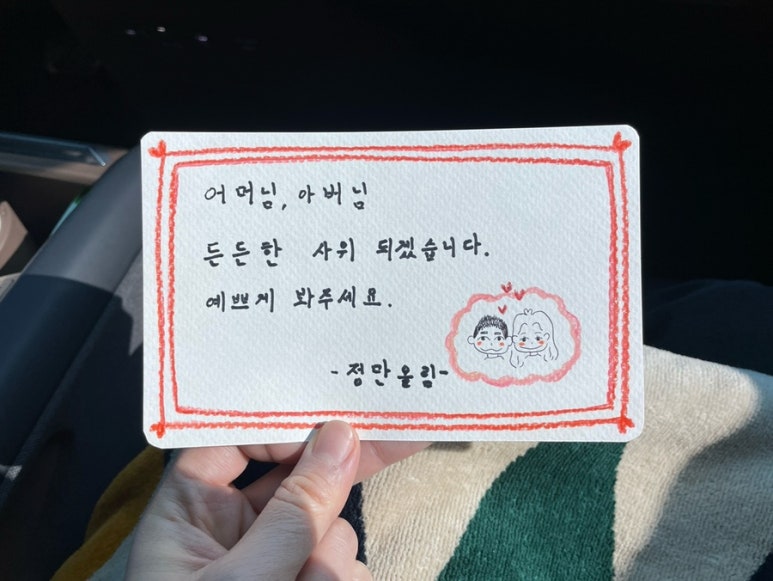 어머님, 아버님
든든한 사위 되겠습니다.
예쁘게 봐주세요.
-정만 올림-